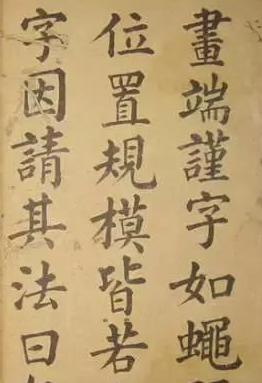 畫端謹字如蠅
位置規模皆若
字因請其法曰